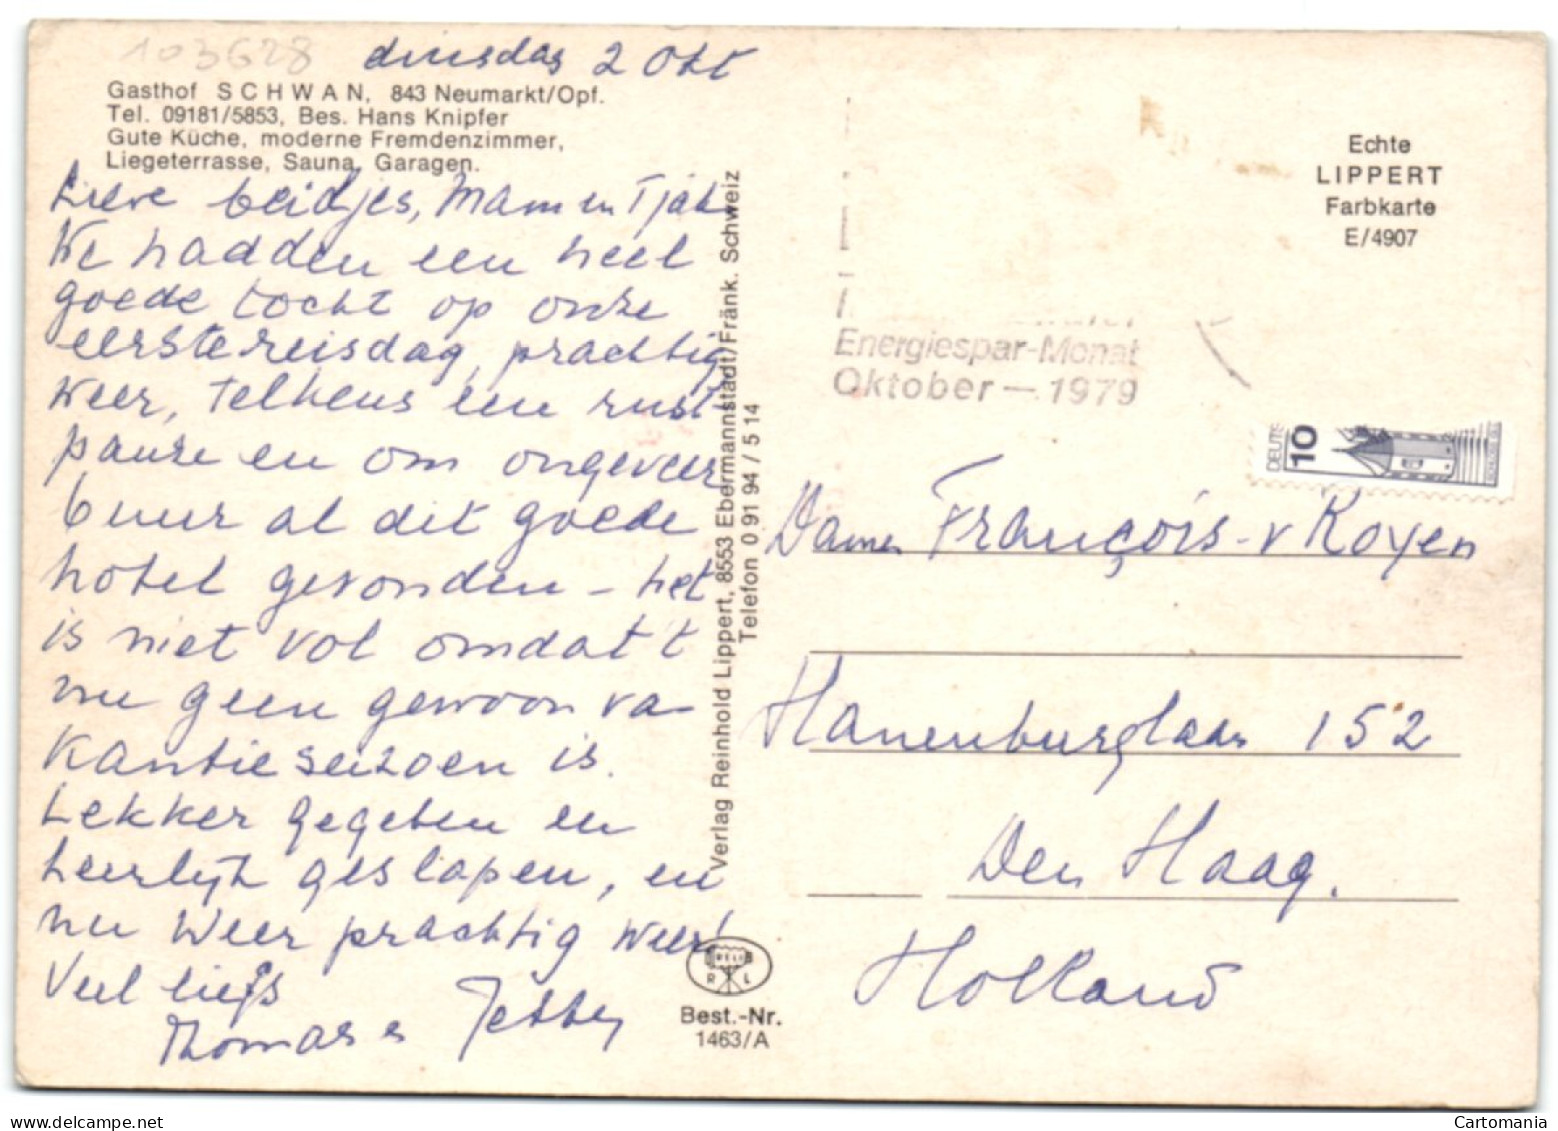 103628
dinsdag 2 Okt
Gasthof SCHWAN, 843 Neumarkt/Opf.
Tel. 09181/5853, Bes. Hans Knipfer
Gute Küche, moderne Fremdenzimmer,
Liegeterrasse, Sauna, Garagen.
Lieve beidjes, Mam en Tjak
We hadden een heel
goede tocht op onze
eerste reisdag, prachtig
weer, telkens een rust-
pauze en om ongeveer
6 uur al dit goede
hotel gevonden – het
is niet vol omdat 't
nu geen gewoon va-
kantieseizoen is.
Lekker gegeten en
heerlijk geslapen, en
nu weer prachtig weer!
Veel liefs
Thomas en
Verlag Reinhold Lippert, 8553 Ebermannstadt/Fränk. Schweiz
Telefon 0 91 94 / 5 14
RELI
R L
Best.-Nr.
1463/A
Echte
LIPPERT
Farbkarte
E/4907
Energiespar-Monat
Oktober – 1979
DEUTS
10
Dames François - v Royen
Hanenburglaan 152
Den Haag.
Holland
www.delcampe.net
Cartomania